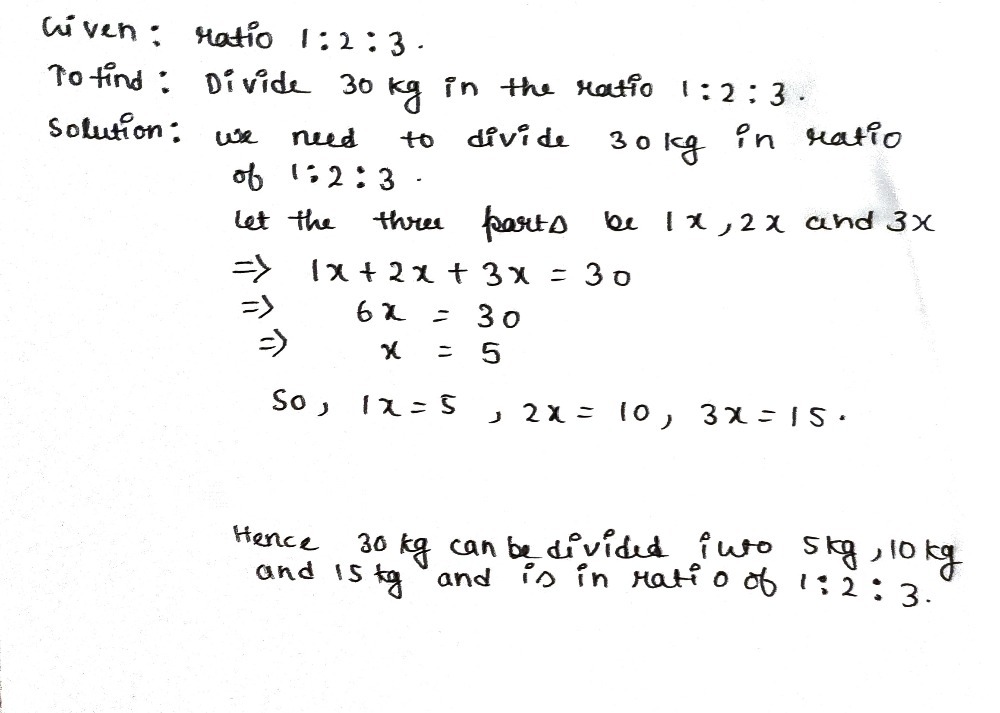 Given : ratio 1 : 2 : 3 .
To find : Divide 30 kg in the ratio 1 : 2 : 3 .
Solution : we need to divide 30 kg in ratio
of 1 : 2 : 3 .
Let the three parts be 1x , 2x and 3x
=> 1x + 2x + 3x = 30
=> 6x = 30
=> x = 5
So , 1x = 5 , 2x = 10 , 3x = 15 .
Hence 30 kg can be divided into 5 kg , 10 kg
and 15 kg and is in ratio of 1 : 2 : 3 .